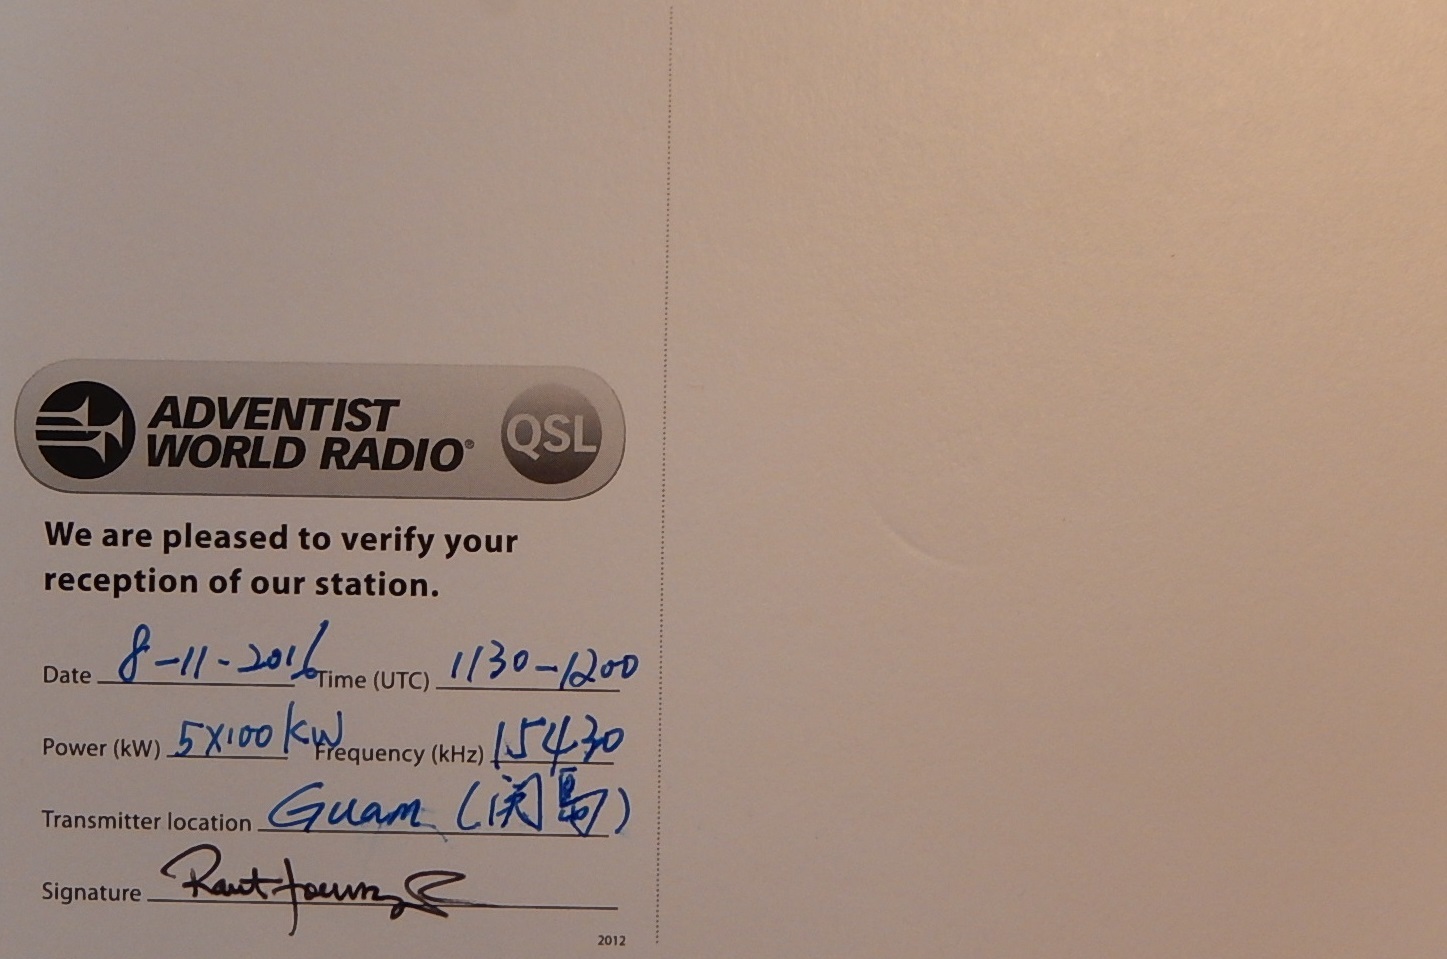 ADVENTIST
WORLD RADIO®
QSL
We are pleased to verify your
reception of our station.
Date 8-11-2016 Time (UTC) 1130-1200
Power (kW) 5X100 kW Frequency (kHz) 15430
Transmitter location Guam (关島)
Signature
2012